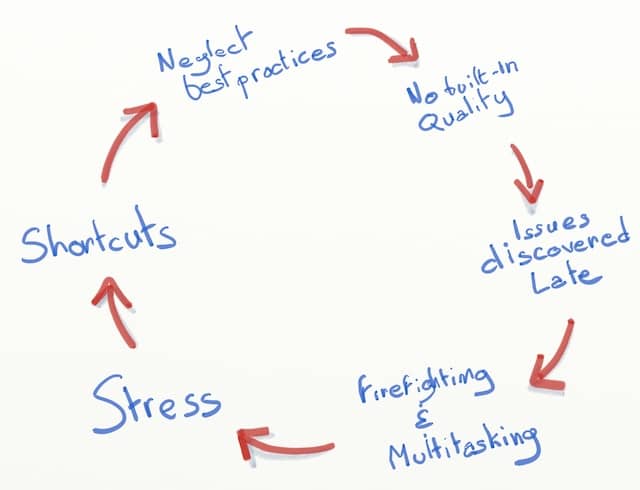 Neglect
best practices
No built-In
Quality
Issues
discovered
Late
Firefighting
&
Multitasking
Stress
Shortcuts